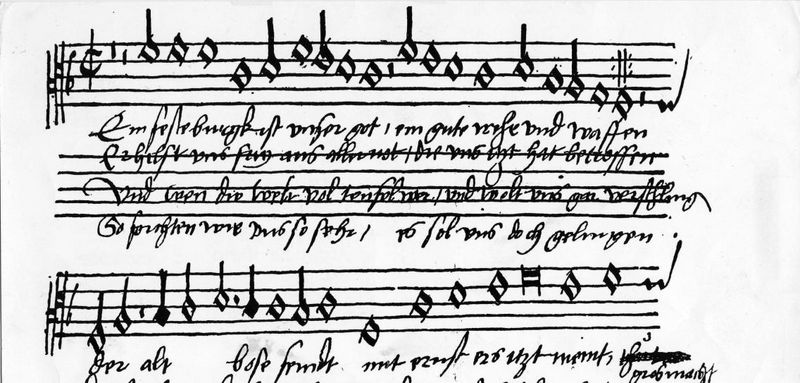 Ein feste burgk ist unser got, ein gute wehr und waffen
Er hilft uns frey aus aller not, die uns itzt hat betroffen
Und wen die welt vol teufel wer, und wolt uns gar verschling
So forchten wir uns so sehr, es sol uns doch gelingen.
der alt bose feindt mit ernst ers itzt meint,
gros macht